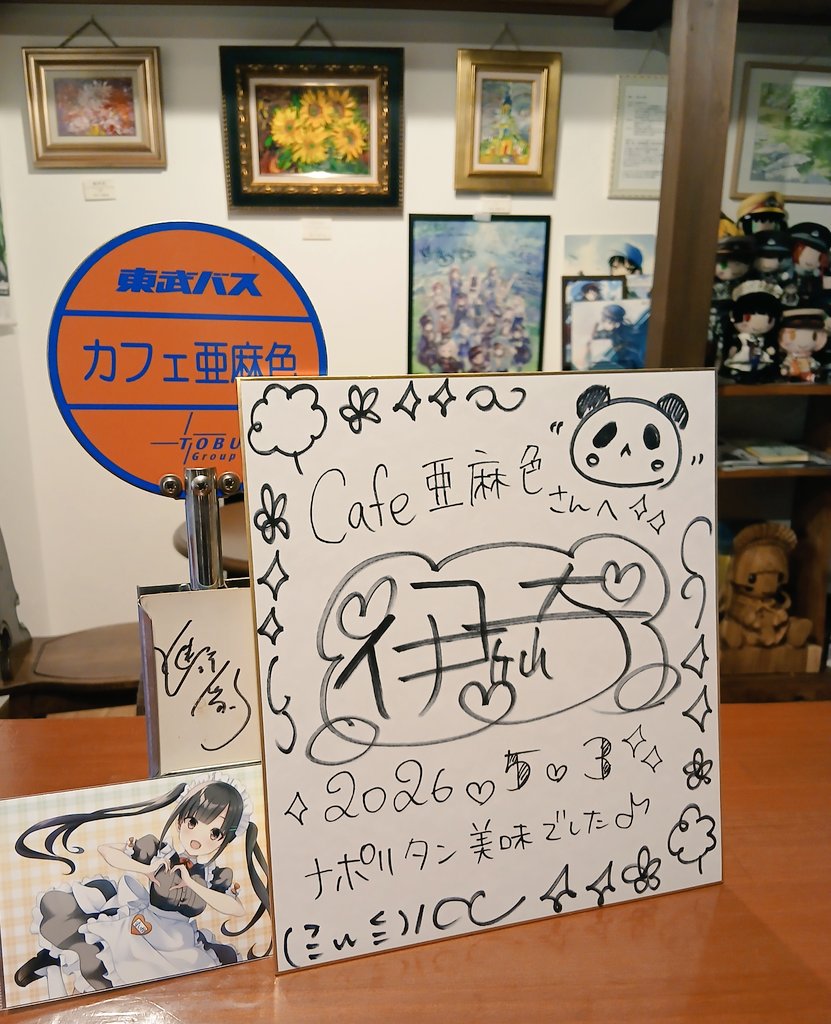 東武バス
カフェ亜麻色
TOBU
Group
Cafe 亜麻色
さんへ
2026♡5♡3
ナポリタン美味でした♪